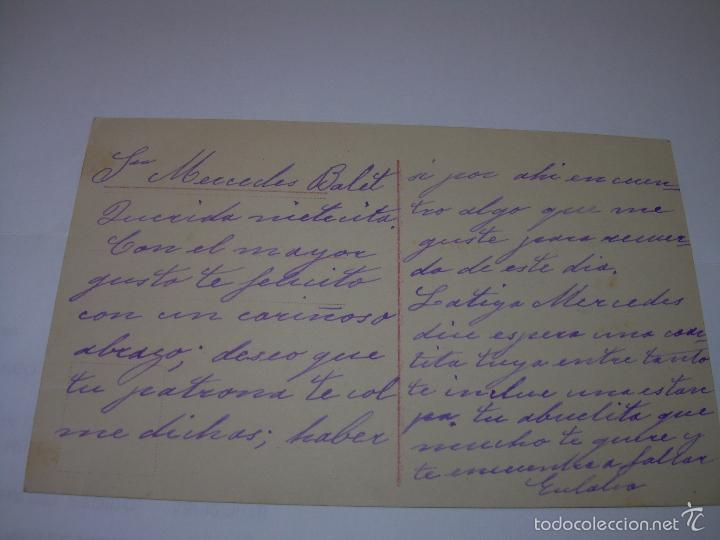 Sra Mercedes Balet
Querida nietecita.
Con el mayor
gusto te felicito
con un cariñoso
abrazo; deseo que
tu patrona te col
me dichas; haber
si por ahi encuen-
tro algo que me
guste para recuer-
do de este dia.
La tiya Mercedes
dice espera una car-
tita tuya entre tanto
te inclue una estam
pa. tu abuelita que
mucho te quiere y
te encuentra a faltar
Eulalia
todocoleccion.net